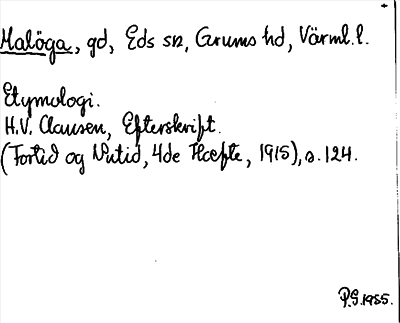 Malöga, gd, Eds sn, Grums hd, Värml. l.
Etymologi.
H.V. Clausen, Efterskrift.
(Fortid og Nutid, 4de Hæfte, 1915), s. 124.
P.G. 1955.